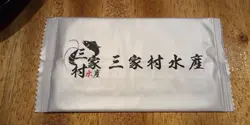 三家
村水産
三家村水産